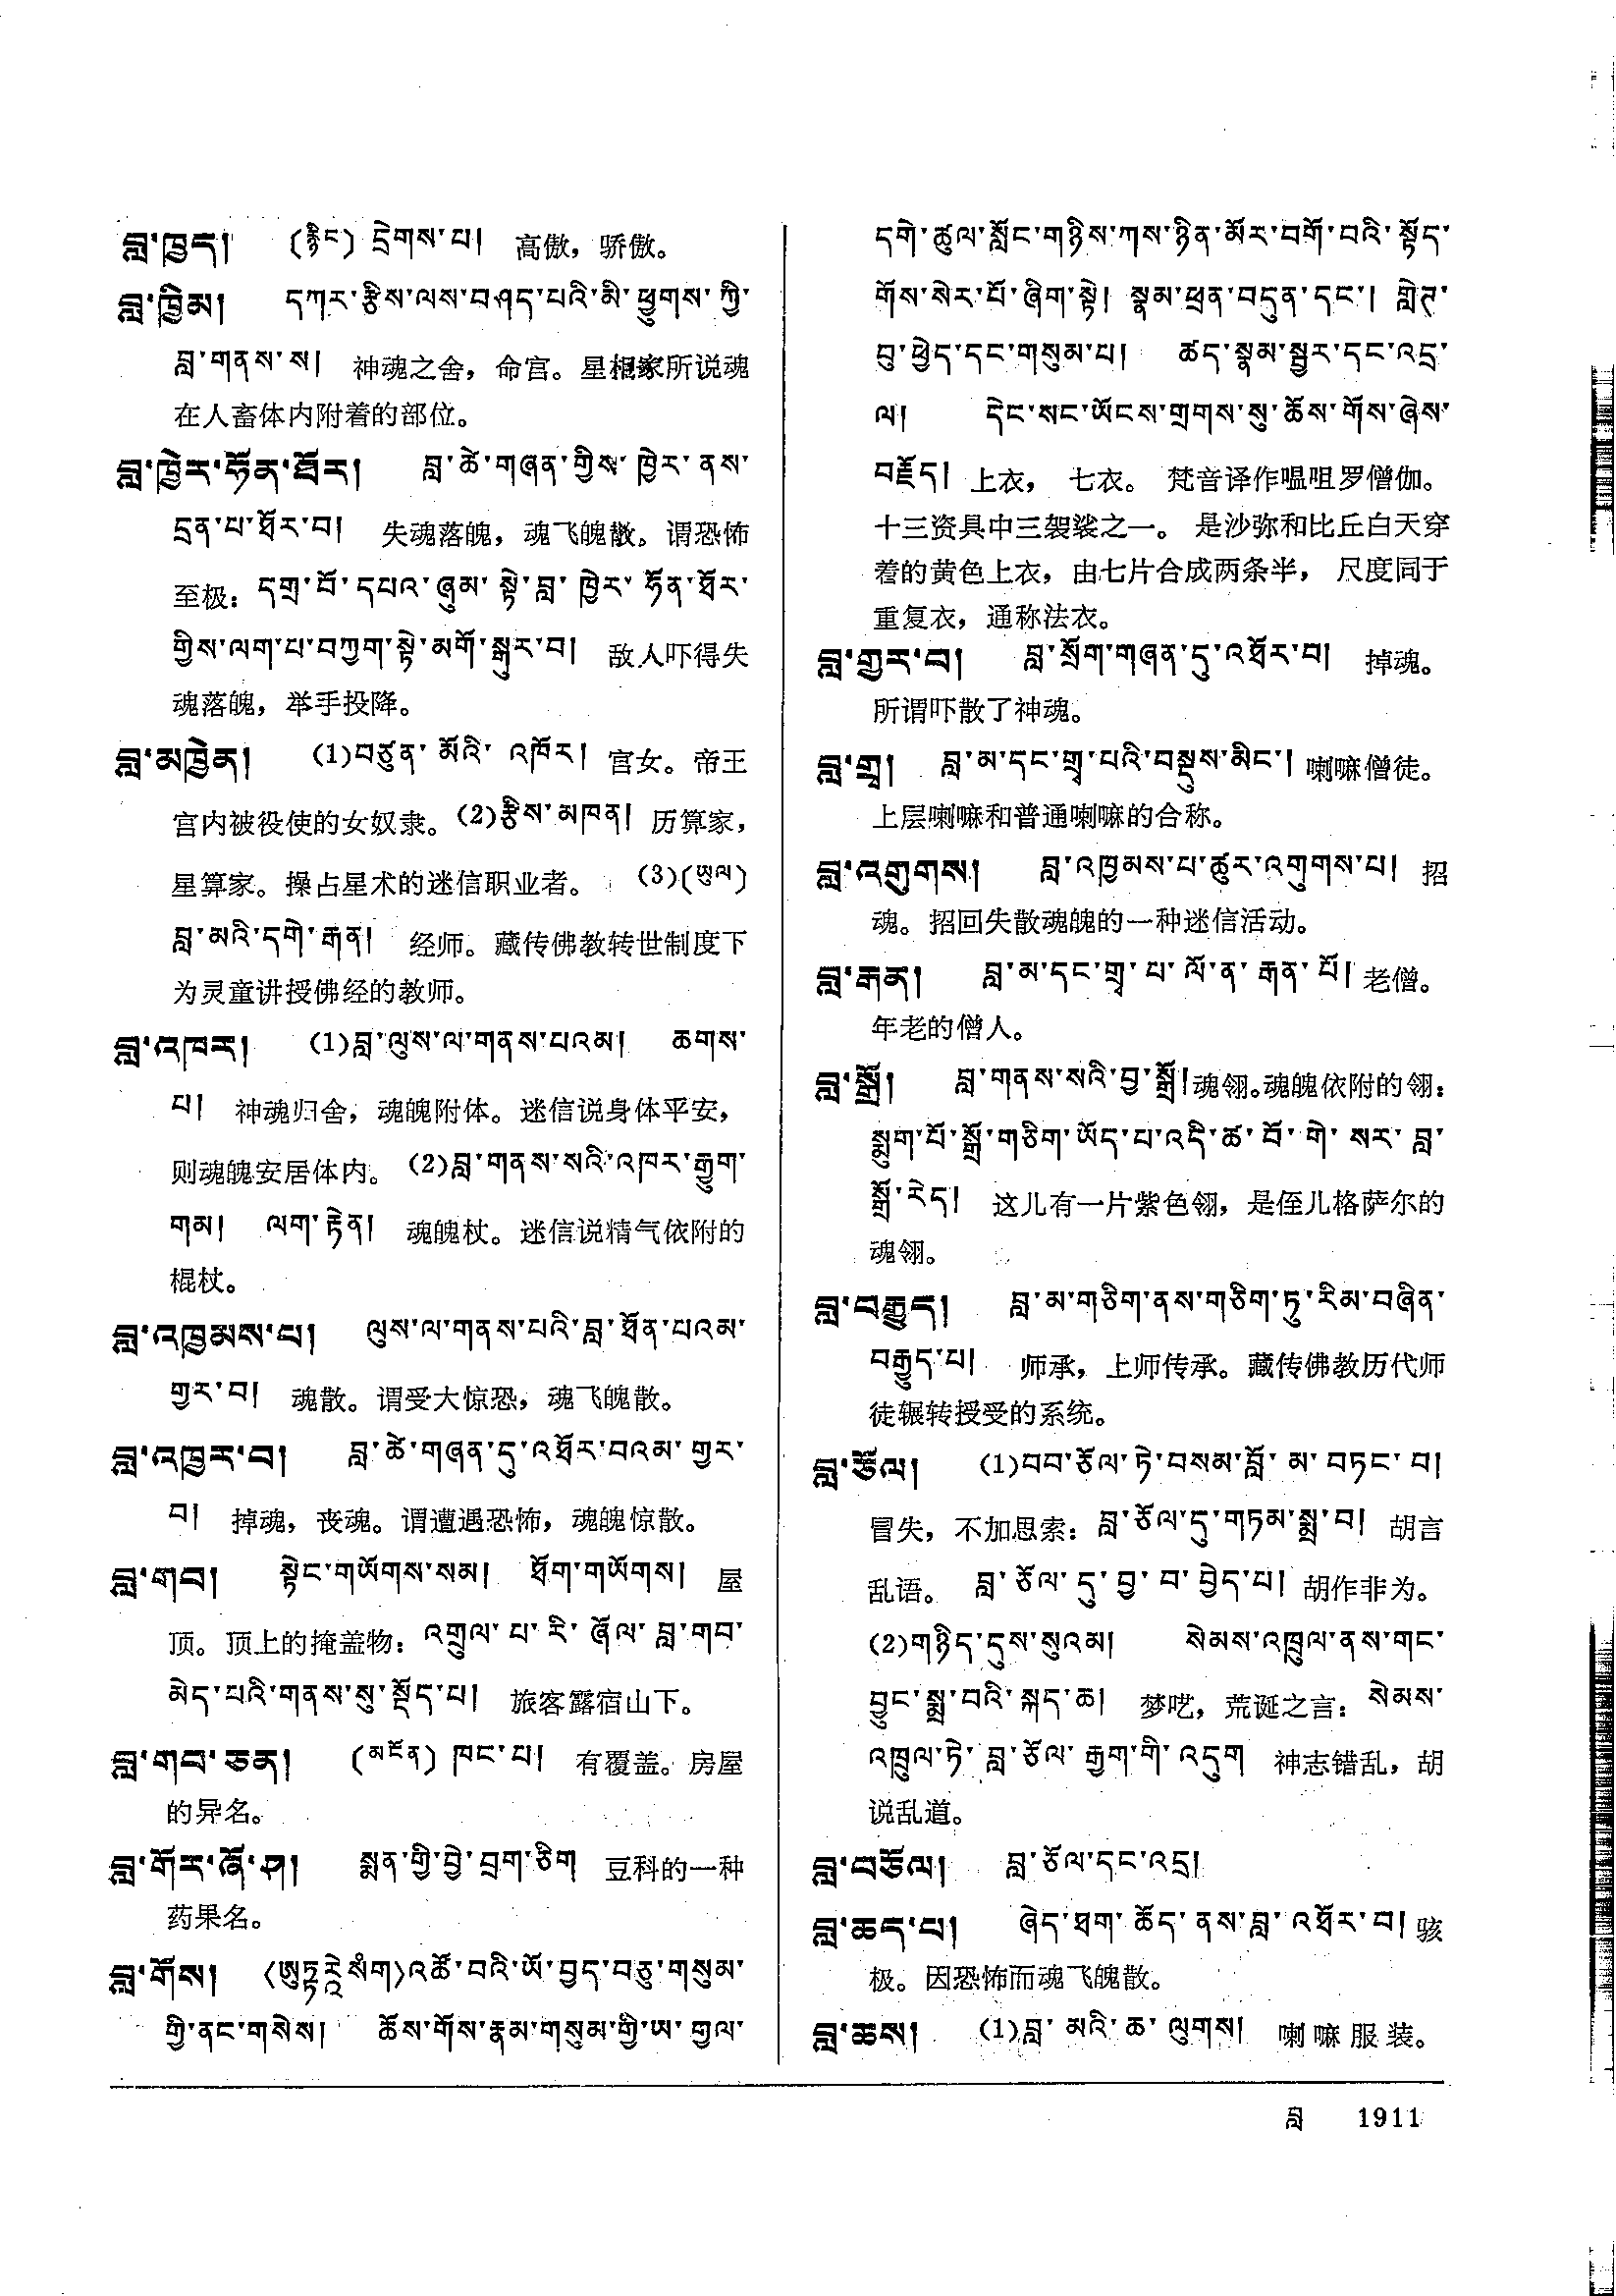 བླ་ཁྱད། (རྙིང) དྲེགས་པ། 高傲，骄傲。
བླ་ཁྱིམ། དཀར་རྩིས་ལས་བཤད་པའི་མི་ཕྱུགས་ཀྱི་
བླ་གནས་ས། 神魂之舍，命宫。星相家所说魂
在人畜体内附着的部位。
བླ་ཁྱེར་ཧོན་ཐོར། བླ་ཚེ་གཞན་གྱིས་ཁྱེར་ནས་
དྲན་པ་ཐོར་བ། 失魂落魄，魂飞魄散。谓恐怖
至极：དགྲ་བོ་དཔའ་ཞུམ་སྟེ་བླ་ཁྱེར་ཧོན་ཐོར་
གྱིས་ལག་པ་བཀྱག་སྟེ་མགོ་སྒུར་བ། 敌人吓得失
魂落魄，举手投降。
བླ་མཁྱེན། (1)བཙུན་མོའི་འཁོར། 宫女。帝王
宫内被役使的女奴隶。(2)རྩིས་མཁན། 历算家，
星算家。操占星术的迷信职业者。 (3)(ཡུལ)
བླ་མའི་དགེ་རྒན། 经师。藏传佛教转世制度下
为灵童讲授佛经的教师。
བླ་འཁར། (1)བླ་ལུས་ལ་གནས་པའམ། ཆགས་
པ། 神魂归舍，魂魄附体。迷信说身体平安，
则魂魄安居体内。(2)བླ་གནས་སའི་འཁར་རྒྱུག་
གམ། ལག་རྟེན། 魂魄杖。迷信说精气依附的
棍杖。
བླ་འཁྱམས་པ། ལུས་ལ་གནས་པའི་བླ་ཐོན་པའམ་
གྱར་བ། 魂散。谓受大惊恐，魂飞魄散。
བླ་འཁྱར་བ། བླ་ཚེ་གཞན་དུ་འཐོར་བའམ་གྱར་
བ། 掉魂，丧魂。谓遭遇恐怖，魂魄惊散。
བླ་གབ། སྟེང་གཡོགས་སམ། ཐོག་གཡོགས། 屋
顶。顶上的掩盖物：འགྲུལ་པ་རི་ཞོལ་བླ་གབ་
མེད་པའི་གནས་སུ་སྡོད་པ། 旅客露宿山下。
བླ་གབ་ཅན། (མངོན) ཁང་པ། 有覆盖。房屋
的异名。
བླ་གོར་ཞོ་ཤ། སྨན་གྱི་བྱེ་བྲག་ཅིག 豆科的一种
药果名。
བླ་གོས། (ཨུཏྟརཱསཾག)འཚོ་བའི་ཡོ་བྱད་བཅུ་གསུམ་
གྱི་ནང་གསེས། ཆོས་གོས་རྣམ་གསུམ་གྱི་ཡ་གྱལ་
དགེ་ཚུལ་སློང་གཉིས་ཀས་ཉིན་མོར་བགོ་བའི་སྟོད་
གོས་སེར་པོ་ཞིག་སྟེ། སྣམ་ཕྲན་བདུན་དང་། གླེཊ་
བུ་ཕྱེད་དང་གསུམ་པ། ཚད་སྣམ་སྦྱར་དང་འདྲ་
ལ། དེང་སང་ཡོངས་གྲགས་སུ་ཆོས་གོས་ཞེས་
བརྗོད། 上衣， 七衣。 梵音译作嗢咀罗僧伽。
十三资具中三袈裟之一。 是沙弥和比丘白天穿
着的黄色上衣，由七片合成两条半， 尺度同于
重复衣，通称法衣。
བླ་གྱར་བ། བླ་སྲོག་གཞན་དུ་འཐོར་བ། 掉魂。
所谓吓散了神魂。
བླ་གྲྭ། བླ་མ་དང་གྲྭ་པའི་བསྡུས་མིང་། 喇嘛僧徒。
上层喇嘛和普通喇嘛的合称。
བླ་འགུགས། བླ་འཁྱམས་པ་ཚུར་འགུགས་པ། 招
魂。招回失散魂魄的一种迷信活动。
བླ་རྒན། བླ་མ་དང་གྲྭ་པ་ལོ་ན་རྒན་པོ། 老僧。
年老的僧人。
བླ་སྒྲོ། བླ་གནས་སའི་བྱ་སྒྲོ། 魂翎。魂魄依附的翎：
སྨུག་པོ་སྒྲོ་གཅིག་ཡོད་པ་འདི་ཚ་བོ་གེ་སར་བླ་
སྒྲོ་རེད། 这儿有一片紫色翎，是侄儿格萨尔的
魂翎。
བླ་བརྒྱུད། བླ་མ་གཅིག་ནས་གཅིག་ཏུ་རིམ་བཞིན་
བརྒྱུད་པ། 师承，上师传承。藏传佛教历代师
徒辗转授受的系统。
བླ་ཅོལ། (1)བབ་ཅོལ་ཏེ་བསམ་བློ་མ་བཏང་བ།
冒失，不加思索：བླ་ཅོལ་དུ་གཏམ་སྨྲ་བ། 胡言
乱语。 བླ་ཅོལ་དུ་བྱ་བ་བྱེད་པ། 胡作非为。
(2)གཉིད་དུས་སུའམ། སེམས་འཁྲུལ་ནས་གང་
བྱུང་སྨྲ་བའི་སྐད་ཆ། 梦呓，荒诞之言：སེམས་
འཁྲུལ་ཏེ་བླ་ཅོལ་རྒྱག་གི་འདུག 神志错乱，胡
说乱道。
བླ་བཅོལ། བླ་ཅོལ་དང་འདྲ།
བླ་ཆད་པ། ཞེད་ཐག་ཆོད་ནས་བླ་འཐོར་བ། 骇
极。因恐怖而魂飞魄散。
བླ་ཆས། (1)བླ་མའི་ཆ་ལུགས། 喇嘛服装。
བླ 1911